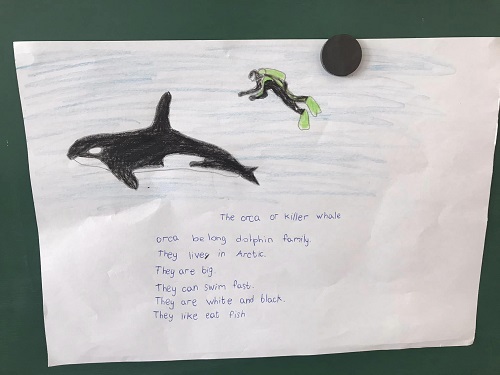 The orca or killer whale
orca belong dolphin family.
They lives in Arctic.
They are big.
They can swim fast.
They are white and black.
They like eat fish